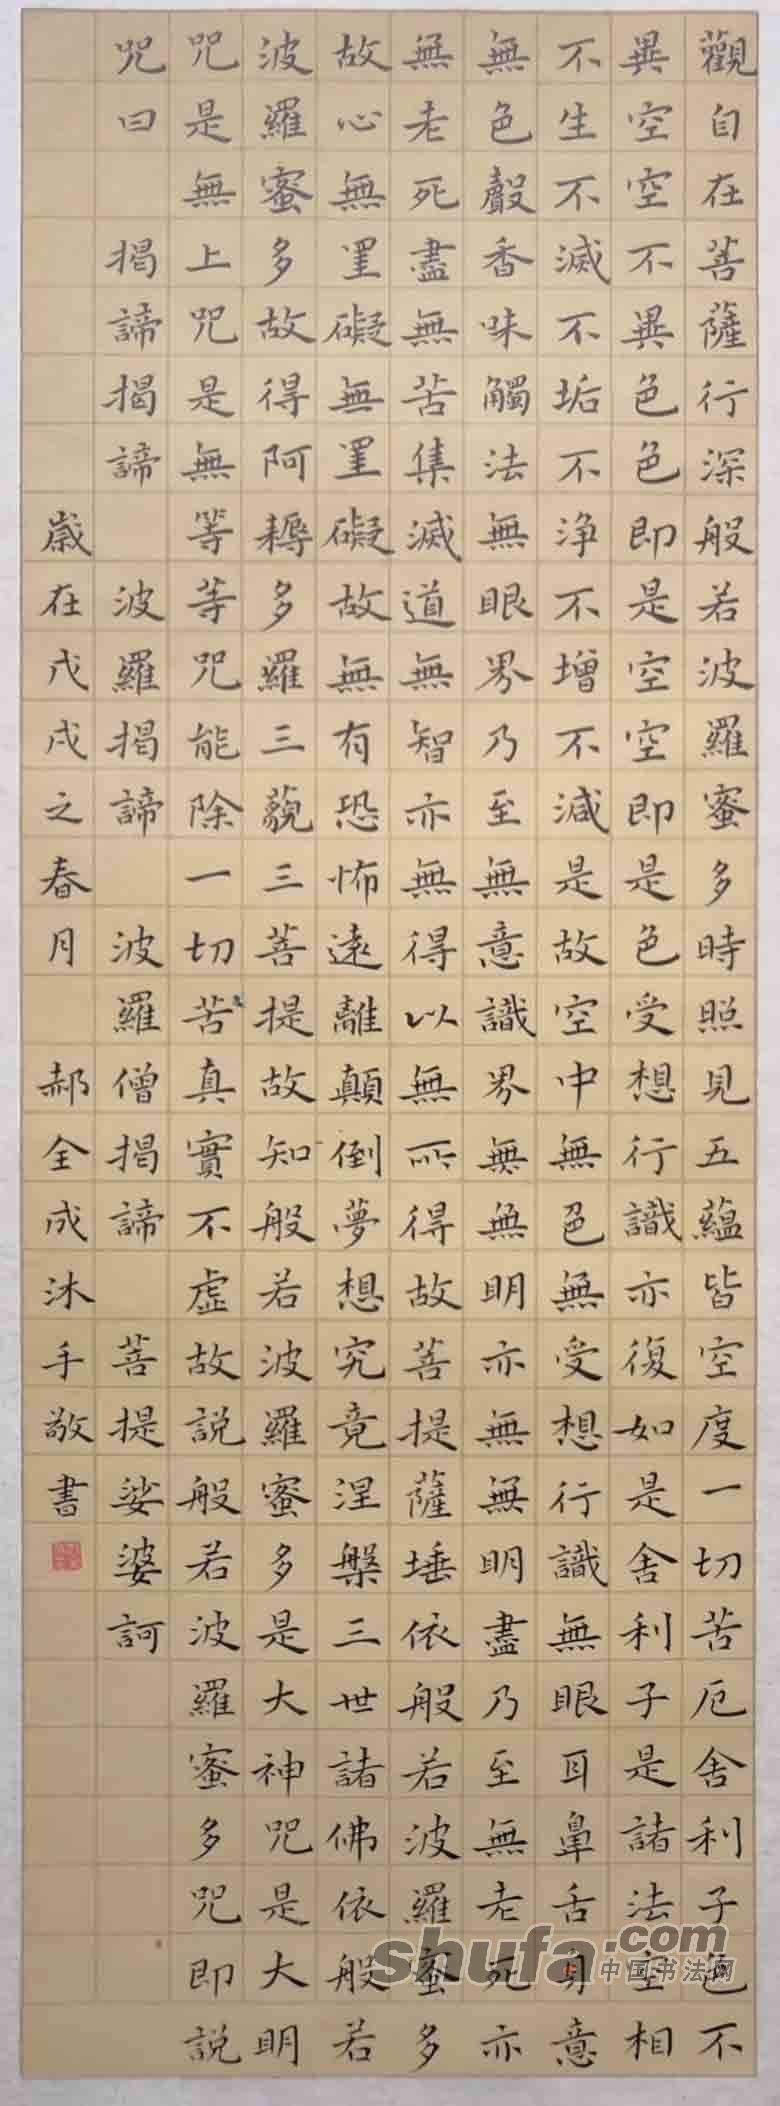 觀自在菩薩行深般若波羅蜜多時照見五蘊皆空度一切苦厄舍利子色不
異空空不異色色即是空空即是色受想行識亦復如是舍利子是諸法空相
不生不滅不垢不淨不增不減是故空中無色無受想行識無眼耳鼻舌身意
無色聲香味觸法無眼界乃至無意識界無無明亦無無明盡乃至無老死亦
無老死盡無苦集滅道無智亦無得以無所得故菩提薩埵依般若波羅蜜多
故心無罣礙無罣礙故無有恐怖遠離顛倒夢想究竟涅槃三世諸佛依般若
波羅蜜多故得阿耨多羅三藐三菩提故知般若波羅蜜多是大神咒是大明
咒是無上咒是無等等咒能除一切苦真實不虛故說般若波羅蜜多咒即說
咒曰 揭諦揭諦 波羅揭諦 波羅僧揭諦 菩提娑婆訶
歲在戊戌之春月 郝全成沐手敬書
shufa.com
中国书法网